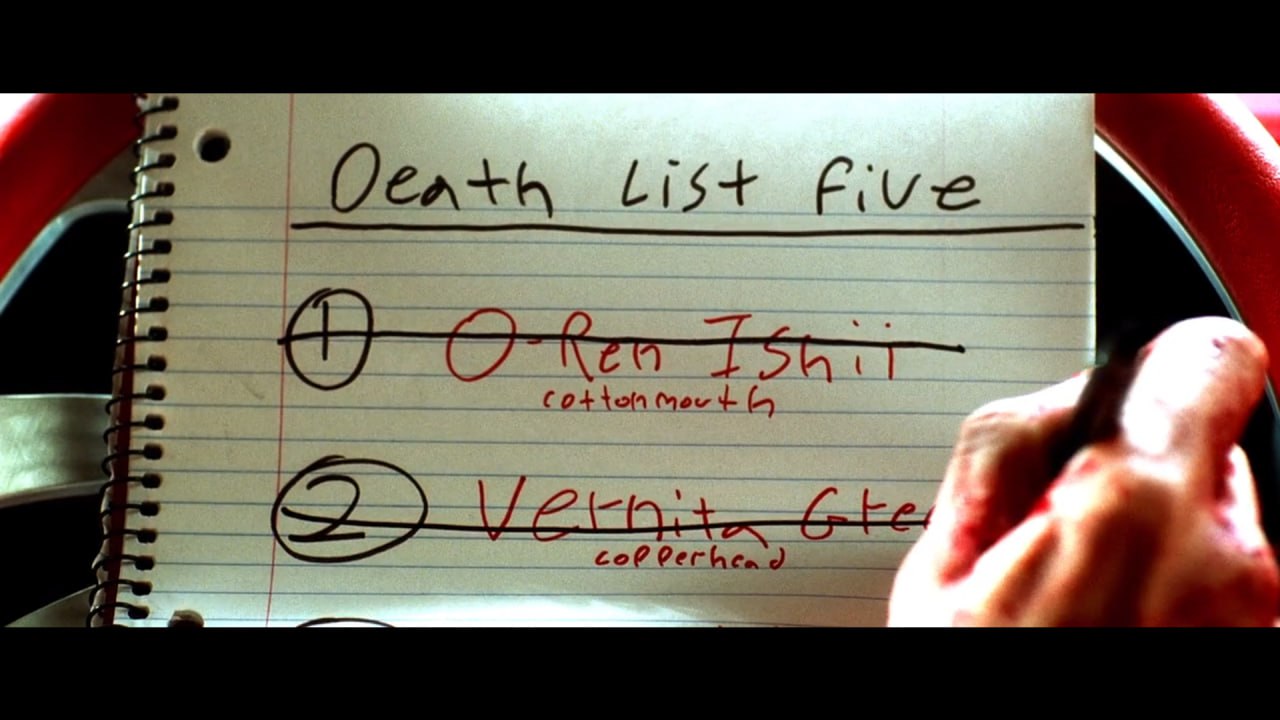 Death List Five
1 O-Ren Ishii
cottonmouth
2 Vernita
copperhead